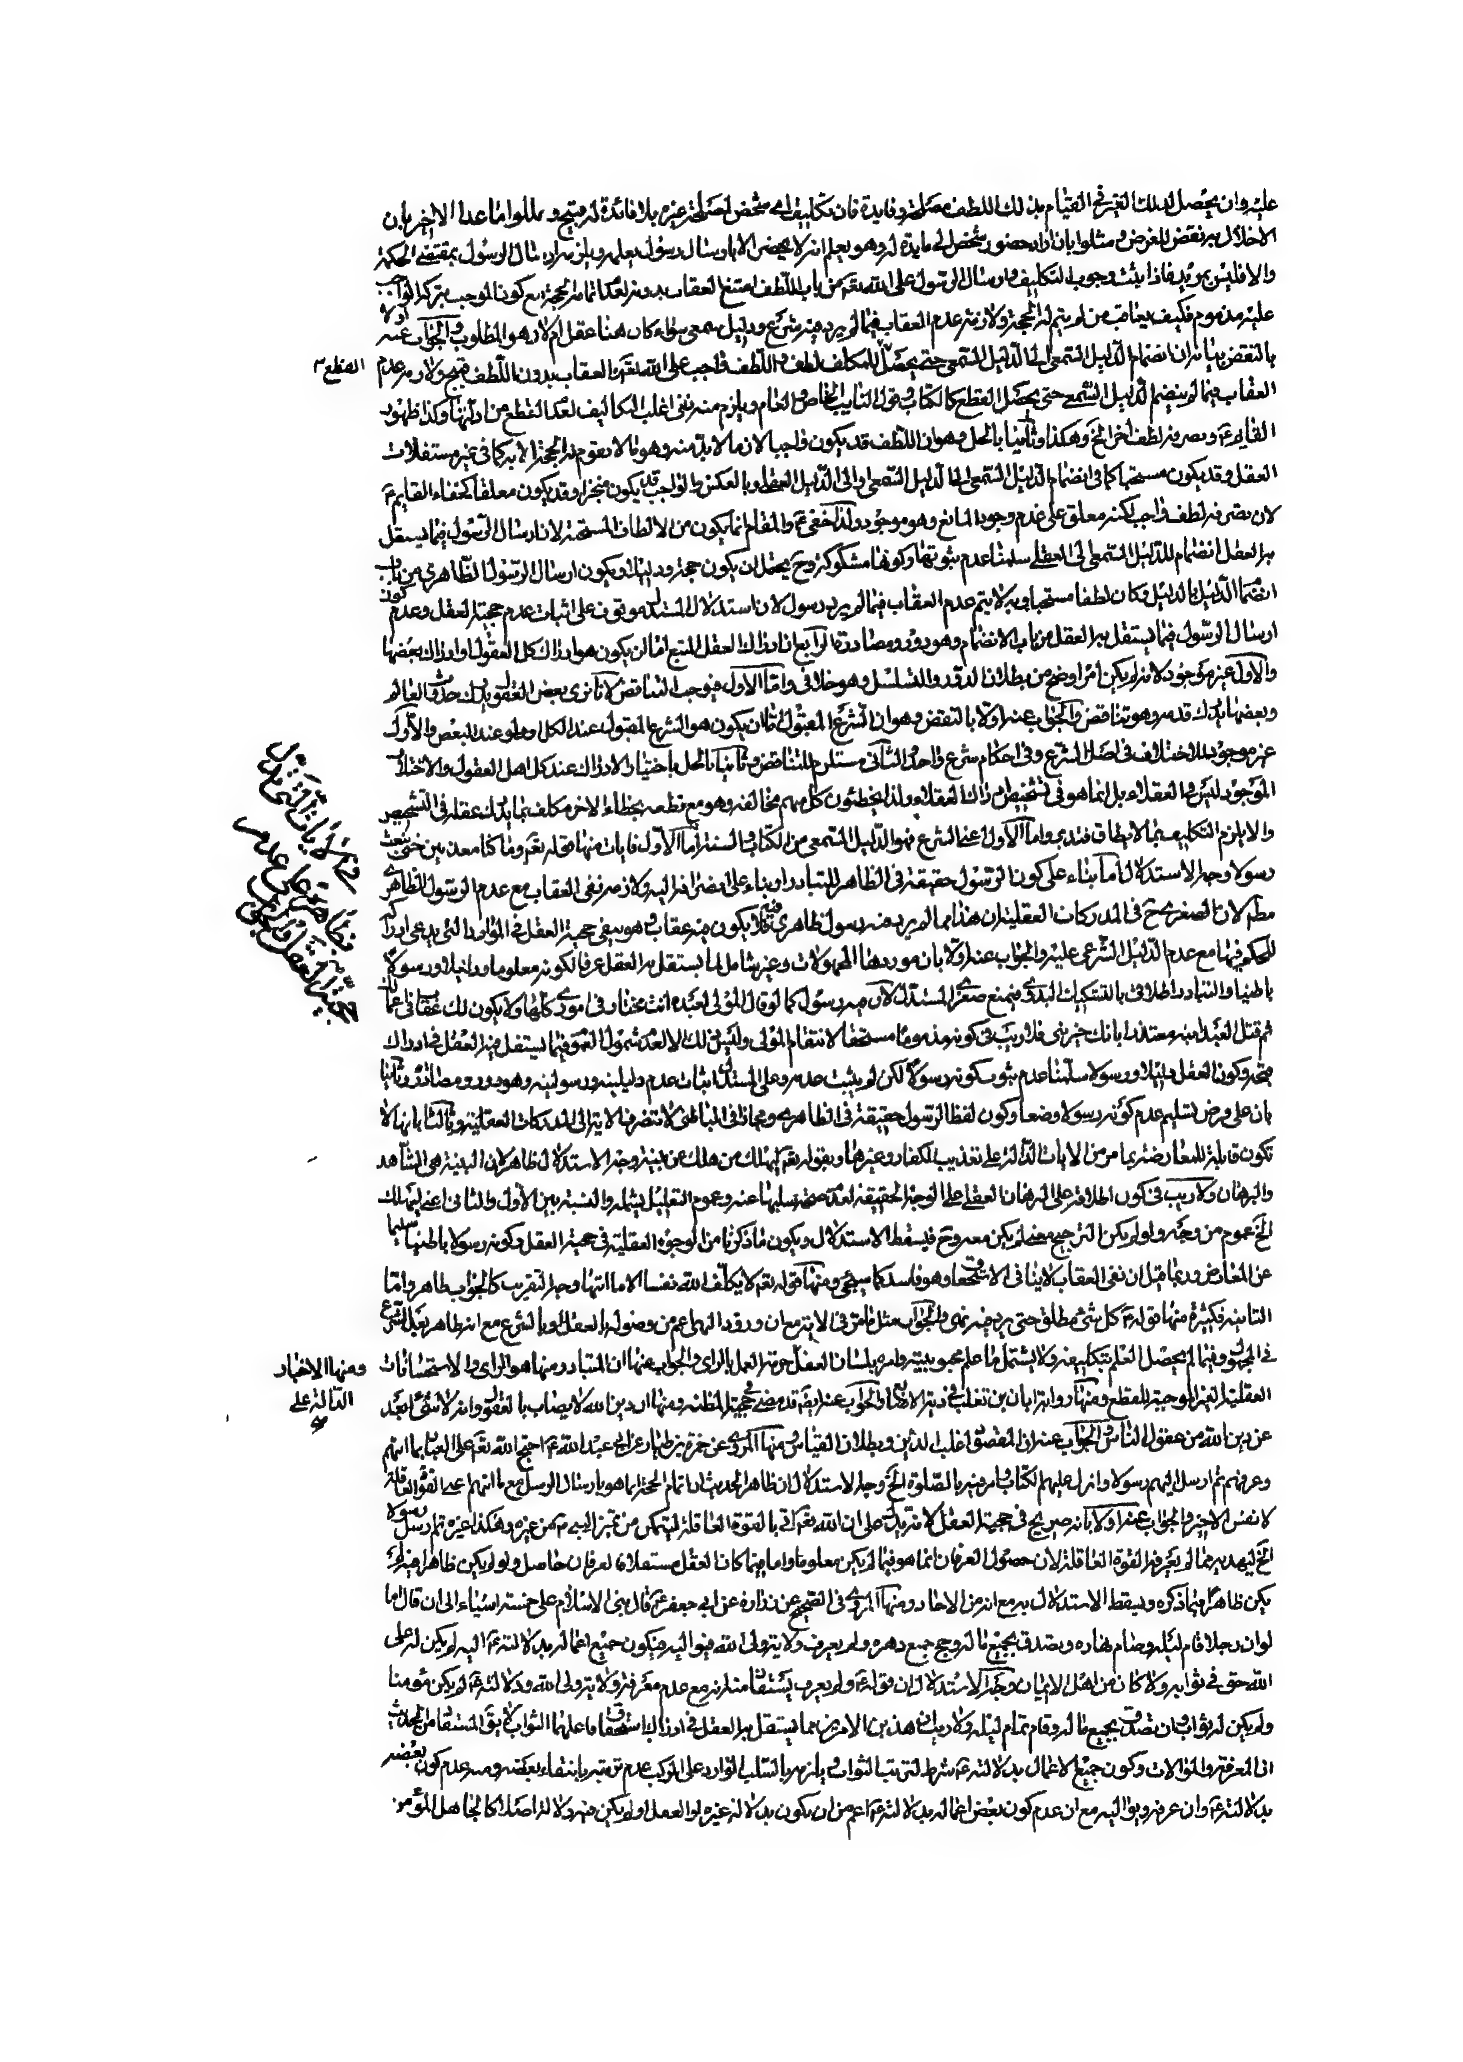 عليه وان يحصل لذلك الغير في القيام بذلك اللطف مصلحة وفايدة فان تكليف شخص لمصلحة غيره بلا فائدة له قبيح وعللوا ما عدا الاخير بان
الاخلال به نقض للغرض ومثلوا بان اراد حضور شخص الى مايدة له وهو يعلم انه لا يحضر الا بارسال رسول يعلمه ويلزمه ارسال الرسول بمقتضى الحكمة
والا فليس بمريد فاذا ثبت وجوب التكليف وارسال الرسول على الله تعالى من باب اللطف امتنع العقاب بدونه لعدم اتمام الحجة مع كون الموجب بترك الواجب
عليه مذموم فكيف يعاقب من لم يتم له الحجة ولازمه عدم العقاب فيما لم يرد فيه شرع ودليل سمعي سواء كان هنا عقل ام لا وهو المطلوب والجواب عنه اولا
بالنقض بيانه ان انضمام الدليل السمعي الى الدليل السمعي حتى يحصل للمكلف لطف واللطف واجب على الله تعالى العقاب بدون اللطف قبيح ولازمه عدم
العقاب فيما لم ينضم الدليل السمعي حتى يحصل القطع كالكتاب وقول النايب الخاص والعام ويلزم منه نفي اغلب التكاليف لعدم القطع من ادلتها وكذا ظهور
القايم ع وتصرفه لطف اخر الخ وهكذا وثانيا بالحل وهو ان اللطف قد يكون واجبا لانه ما لا بد منه وهو ما لا يقوم الحجة الا به كما في غير مستقلات
العقل وقد يكون مستحبا كما في انضمام الدليل السمعي الى الدليل السمعي والى الدليل العقلي وبالعكس والواجب قد يكون منجزا وقد يكون معلقا كخفاء القايم ع
لان تصرفه لطف واجب لكنه معلق على عدم وجود المانع وهو موجود ولذا خفي ع والمقام انما يكون من الالطاف المستحبة لان ارسال الرسول فيما يستقل
به العقل انضمام للدليل السمعي الى العقلي سلمنا عدم ثبوتها وكونها مشكوكة وح يحتمل ان يكون حجة ودليلا ويكون ارسال الرسول الظاهري من باب
انضمام الدليل بالدليل وكان لطفا مستحبا وبه لا يتم عدم العقاب فيما لم يرد رسول لان استدلال المستدل موقوف على اثبات عدم حجية العقل وعدم كون
ارسال الرسول فيما يستقل به العقل من باب الانضمام وهو دور ومصادرة الرابع ان ادراك العقل المتبع اما ان يكون هو ادراك كل العقول او ادراك بعضها
والاول غير موجود لانه لم يكن امرا اوضح من بطلان الدور والتسلسل وهو خلافي واما الاول فيوجب التناقض لانا نرى بعض العقول يدرك حدوث العالم
وبعضها يدرك قدمه وهو تناقض والجواب عنه اولا بالنقض وهو ان الشرع المقبول اما ان يكون هو الشرع المقبول عند الكل او عند البعض والاول
غير موجود للاختلاف في اصل الشرع وفي احكام شرع واحد والثاني مستلزم للتناقض وثانيا بالحل باختيار الادراك عند كل اهل العقول والاختلاف
الموجود ليس في العقلاء بل انما هو في تشخيص مدرك العقلاء ولذا يخطئون كل منهم مخالفه وهو مع قطعه بخطاء الاخر مكلف بما يدرك عقله في التشخيص
والا يلزم التكليف بما لا يطاق فتدبر واما الاول اعني الشرع فهو الدليل السمعي من الكتاب والسنة اما الاول فايات منها قوله تعالى وما كنا معذبين حتى نبعث
رسولا وجه الاستدلال اما بناء على كون الرسول حقيقة في الظاهر للتبادر او بناء على انصرافه اليه ولازمه نفي العقاب مع عدم الرسول الظاهري
مطلقا لان الصغرى ح في المدركات العقلية ان هذا مما لم يرد فيه رسول ظاهري فلا يكون فيه عقاب وهو ينفي حجية العقل في المؤاخذة التي يدعى ادراكه
للحكم فيها مع عدم الدليل الشرعي عليه والجواب عنه اولا بان موردها المجهولات وغير شامل لما يستقل به العقل عرفا لكونه معلوما ودليلا ورسولا
باطنيا والتبادر اطلاقي بالتشكيك البدوي فيمنع صغرى المستدل لانه فيه رسول كما لو قال المولى لعبده انت مختار في امورك كلها ولا يكون لك عقاب في اعمالك
ثم قتل العبد ابنه معتذرا بانك خيرتني فلا ريب في كونه مذموما مستحقا لانتقام المولى وليس ذلك الا لعدم شمول العموم فيما يستقل فيه العقل في ادراك
قبحه وكون العقل دليلا ورسولا سلمنا عدم ثبوت كونه رسولا لكن لم يثبت عدمه وعلى المستدل اثبات عدم دليليته ورسوليته وهو دور ومصادرة وثانيا
بان على فرض تسليم عدم كونه رسولا وضعا وكون لفظ الرسول حقيقة في الظاهري ومجازا في الباطني لا تنصرف الاية الى المدركات العقلية وثالثا بانها لا
تكون قابلة للمعارضة بما مر من الايات الدالة على تعذيب الكفار وغيرها وبقوله تعالى ليهلك من هلك عن بينة وجه الاستدلال ظاهر لان البينة هي الشاهد
والبرهان ولا ريب في كون اطلاقه على البرهان العقلي على الوجه الحقيقة لعدم صحة سلبها عنه وعموم التعليل يشمله والنسبة بين الاول والثاني اعني ليهلك
الخ عموم من وجه ولو لم يكن الترجيح معنا لم يكن معه وح فيسقط الاستدلال ويكون ما ذكرنا من الوجوه العقلية في حجية العقل وكونه رسولا باطنيا سليما
عن المعارض وربما قيل ان نفي العقاب لا ينافي الاستحقاق وهو فاسد كما سيجيء ومنها قوله تعالى لا يكلف الله نفسا الا ما اتيها وجه التقريب كالجواب ظاهر واما
الثانية فكثيرة منها قوله ع كل شيء مطلق حتى يرد فيه نهي والجواب مثل ما مر في الاية مع ان ورود النهي اعم من وصوله بالعقل او بالشرع مع انه ظاهر بعد الشرع
في المجهول وفيما لم يحصل العلم بتكليفه ولا يشتمل ما علم محبوبيته ولو بلسان العقل حرمة العمل بالراي والجواب عنها ان المتبادر منها هو الراي والاستحسانات
العقلية الغير الموجبة للقطع ومنها رواية ابان بن تغلب في دية الاصابع والجواب عنه ايضا قد مضى في حجية المظنة ومنها ان دين الله لا يصاب بالعقول وانه لا شيء ابعد
عن دين الله من عقول الناس والجواب عنه ان المقصود اغلب الدين وبطلان القياس ومنها المروي عن حمزة بن طيار عن ابي عبد الله ع احتج الله تعالى على العباد بما اتيهم
وعرفهم ثم ارسل اليهم رسولا وانزل عليهم الكتاب وامر فيه بالصلوة الخ وجه الاستدلال ان ظاهر الحديث ان اتمام الحجة انما هو بارسال الرسل مع ما اتيهم اعني القوة العاقلة
لا نفس الاخير والجواب عنه اولا بانه صريح في حجية العقل لانه يدل على ان الله تعالى اتى بالقوة العاقلة ليتمكن من تميز النبي ص من غيره وهكذا غيره ثم ارسل رسولا
الخ ليهديهم فيما لم يعرفه القوة العاقلة لان حصول العرفان انما هو فيما لم يكن معلوما واما فيما كان العقل مستقلا فالعرفان حاصل ولو لم يكن ظاهرا فيه لم
يكن ظاهرا فيما ذكره ويسقط الاستدلال به مع انه من الاحاد ومنها المروي في الصحيح عن زرارة عن ابي جعفر ع قال بني الاسلام على خمسة اشياء الى ان قال اما
لو ان رجلا قام ليله وصام نهاره وتصدق بجميع ماله وحج جميع دهره ولم يعرف ولاية ولي الله فيواليه فيكون جميع اعماله بدلالته ع اليه لم يكن له على
الله حق في ثوابه ولا كان من اهل الايمان وجه الاستدلال ان قوله ع ولم يعرف يستفاد منه انه مع عدم معرفة ولاية ولي الله ودلالته ع لم يكن مؤمنا
ولم يكن له ثواب وان تصدق بجميع ماله وقام تمام ليله ولا ريب ان هذين الامرين مما يستقل به العقل في ادراك استحقاق فاعلهما الثواب لا يقال المستفاد من الحديث
ان المعرفة والموالات وكون جميع الاعمال بدلالته ع شرط لترتب الثواب ويلزمه بالسلب الوارد على المركب عدم ترتبه بانتفاء بعضه ومنه عدم كون بعضه
بدلالته ع وان عرفه ويواليه مع ان عدم كون بعض اعماله بدلالته ع اعم من ان يكون بدلالة غيره او العمل او لم يكن فيه دلالة اصلا كالجاهل المؤمن
القطع
ومنها الاخبار
الدالة على